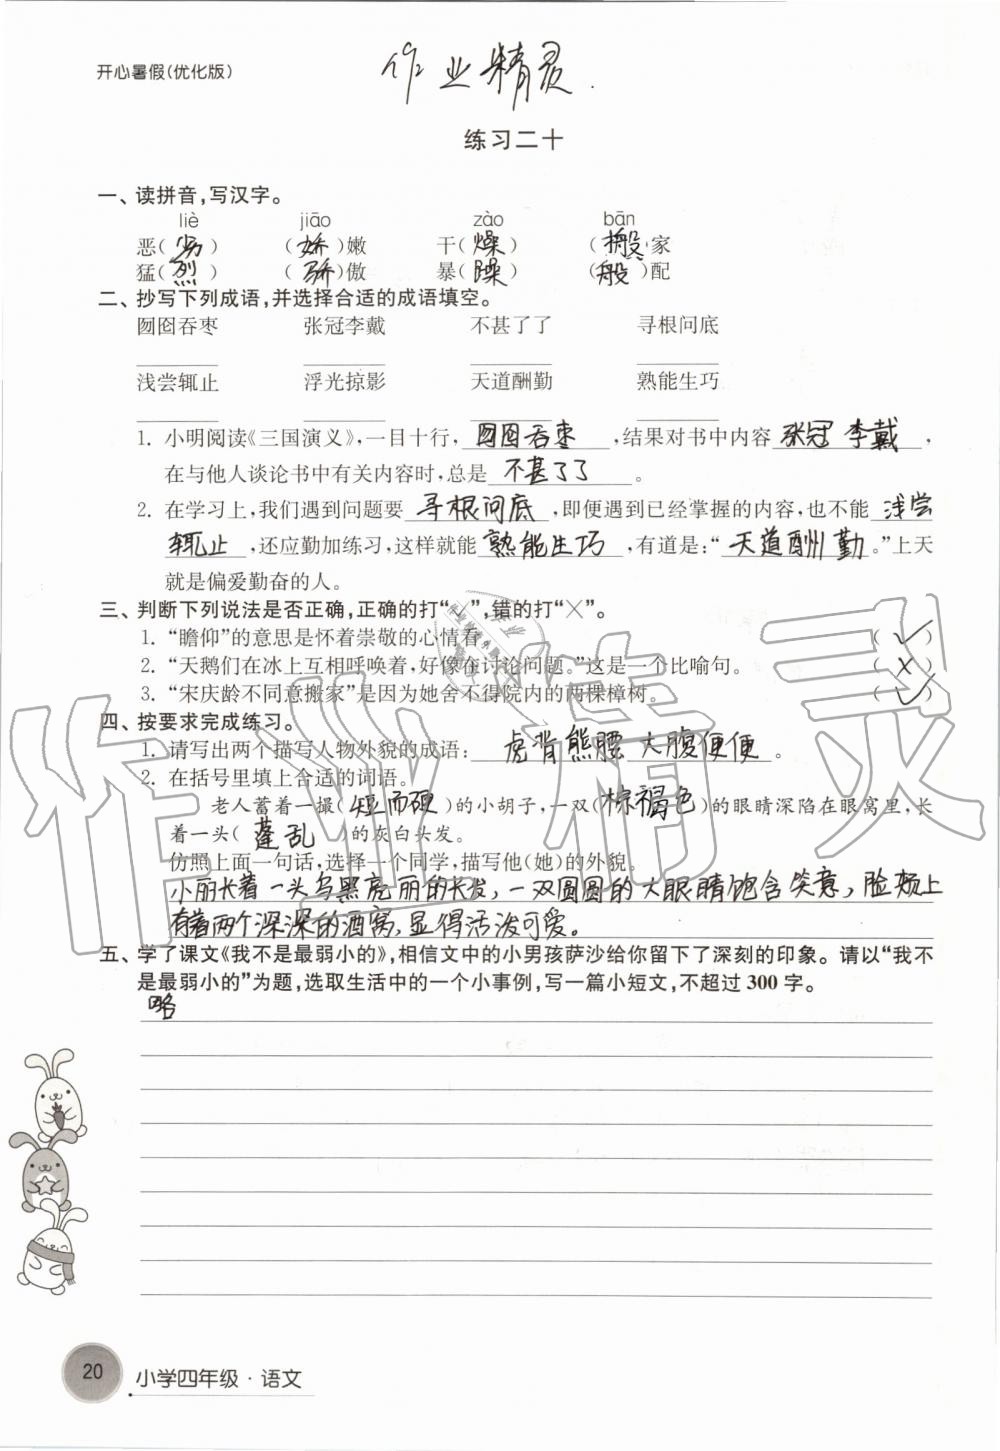 开心暑假(优化版)
作业精灵.
练习二十
一、读拼音,写汉字。
liè jiāo zào bān
恶(劣) (娇)嫩 干(燥) (搬)家
猛(烈) (骄)傲 暴(躁) (般)配
二、抄写下列成语,并选择合适的成语填空。
囫囵吞枣 张冠李戴 不甚了了 寻根问底
浅尝辄止 浮光掠影 天道酬勤 熟能生巧
1. 小明阅读《三国演义》,一目十行,囫囵吞枣,结果对书中内容张冠李戴,
在与他人谈论书中有关内容时,总是不甚了了。
2. 在学习上,我们遇到问题要寻根问底,即便遇到已经掌握的内容,也不能浅尝
辄止,还应勤加练习,这样就能熟能生巧,有道是:“天道酬勤。”上天
就是偏爱勤奋的人。
三、判断下列说法是否正确,正确的打“√”,错的打“×”。
1. “瞻仰”的意思是怀着崇敬的心情看。 (√)
2. “天鹅们在冰上互相呼唤着,好像在讨论问题。”这是一个比喻句。 (×)
3. “宋庆龄不同意搬家”是因为她舍不得院内的两棵樟树。 (√)
四、按要求完成练习。
1. 请写出两个描写人物外貌的成语:虎背熊腰 大腹便便。
2. 在括号里填上合适的词语。
老人蓄着一撮(短而硬)的小胡子,一双(棕褐色)的眼睛深陷在眼窝里,长
着一头(蓬乱)的灰白头发。
仿照上面一句话,选择一个同学,描写他(她)的外貌。
小丽长着一头乌黑亮丽的长发,一双圆圆的大眼睛饱含笑意,脸颊上
有着两个深深的酒窝,显得活泼可爱。
五、学了课文《我不是最弱小的》,相信文中的小男孩萨沙给你留下了深刻的印象。请以“我不
是最弱小的”为题,选取生活中的一个小事例,写一篇小短文,不超过300字。
略
20
小学四年级·语文
作业精灵